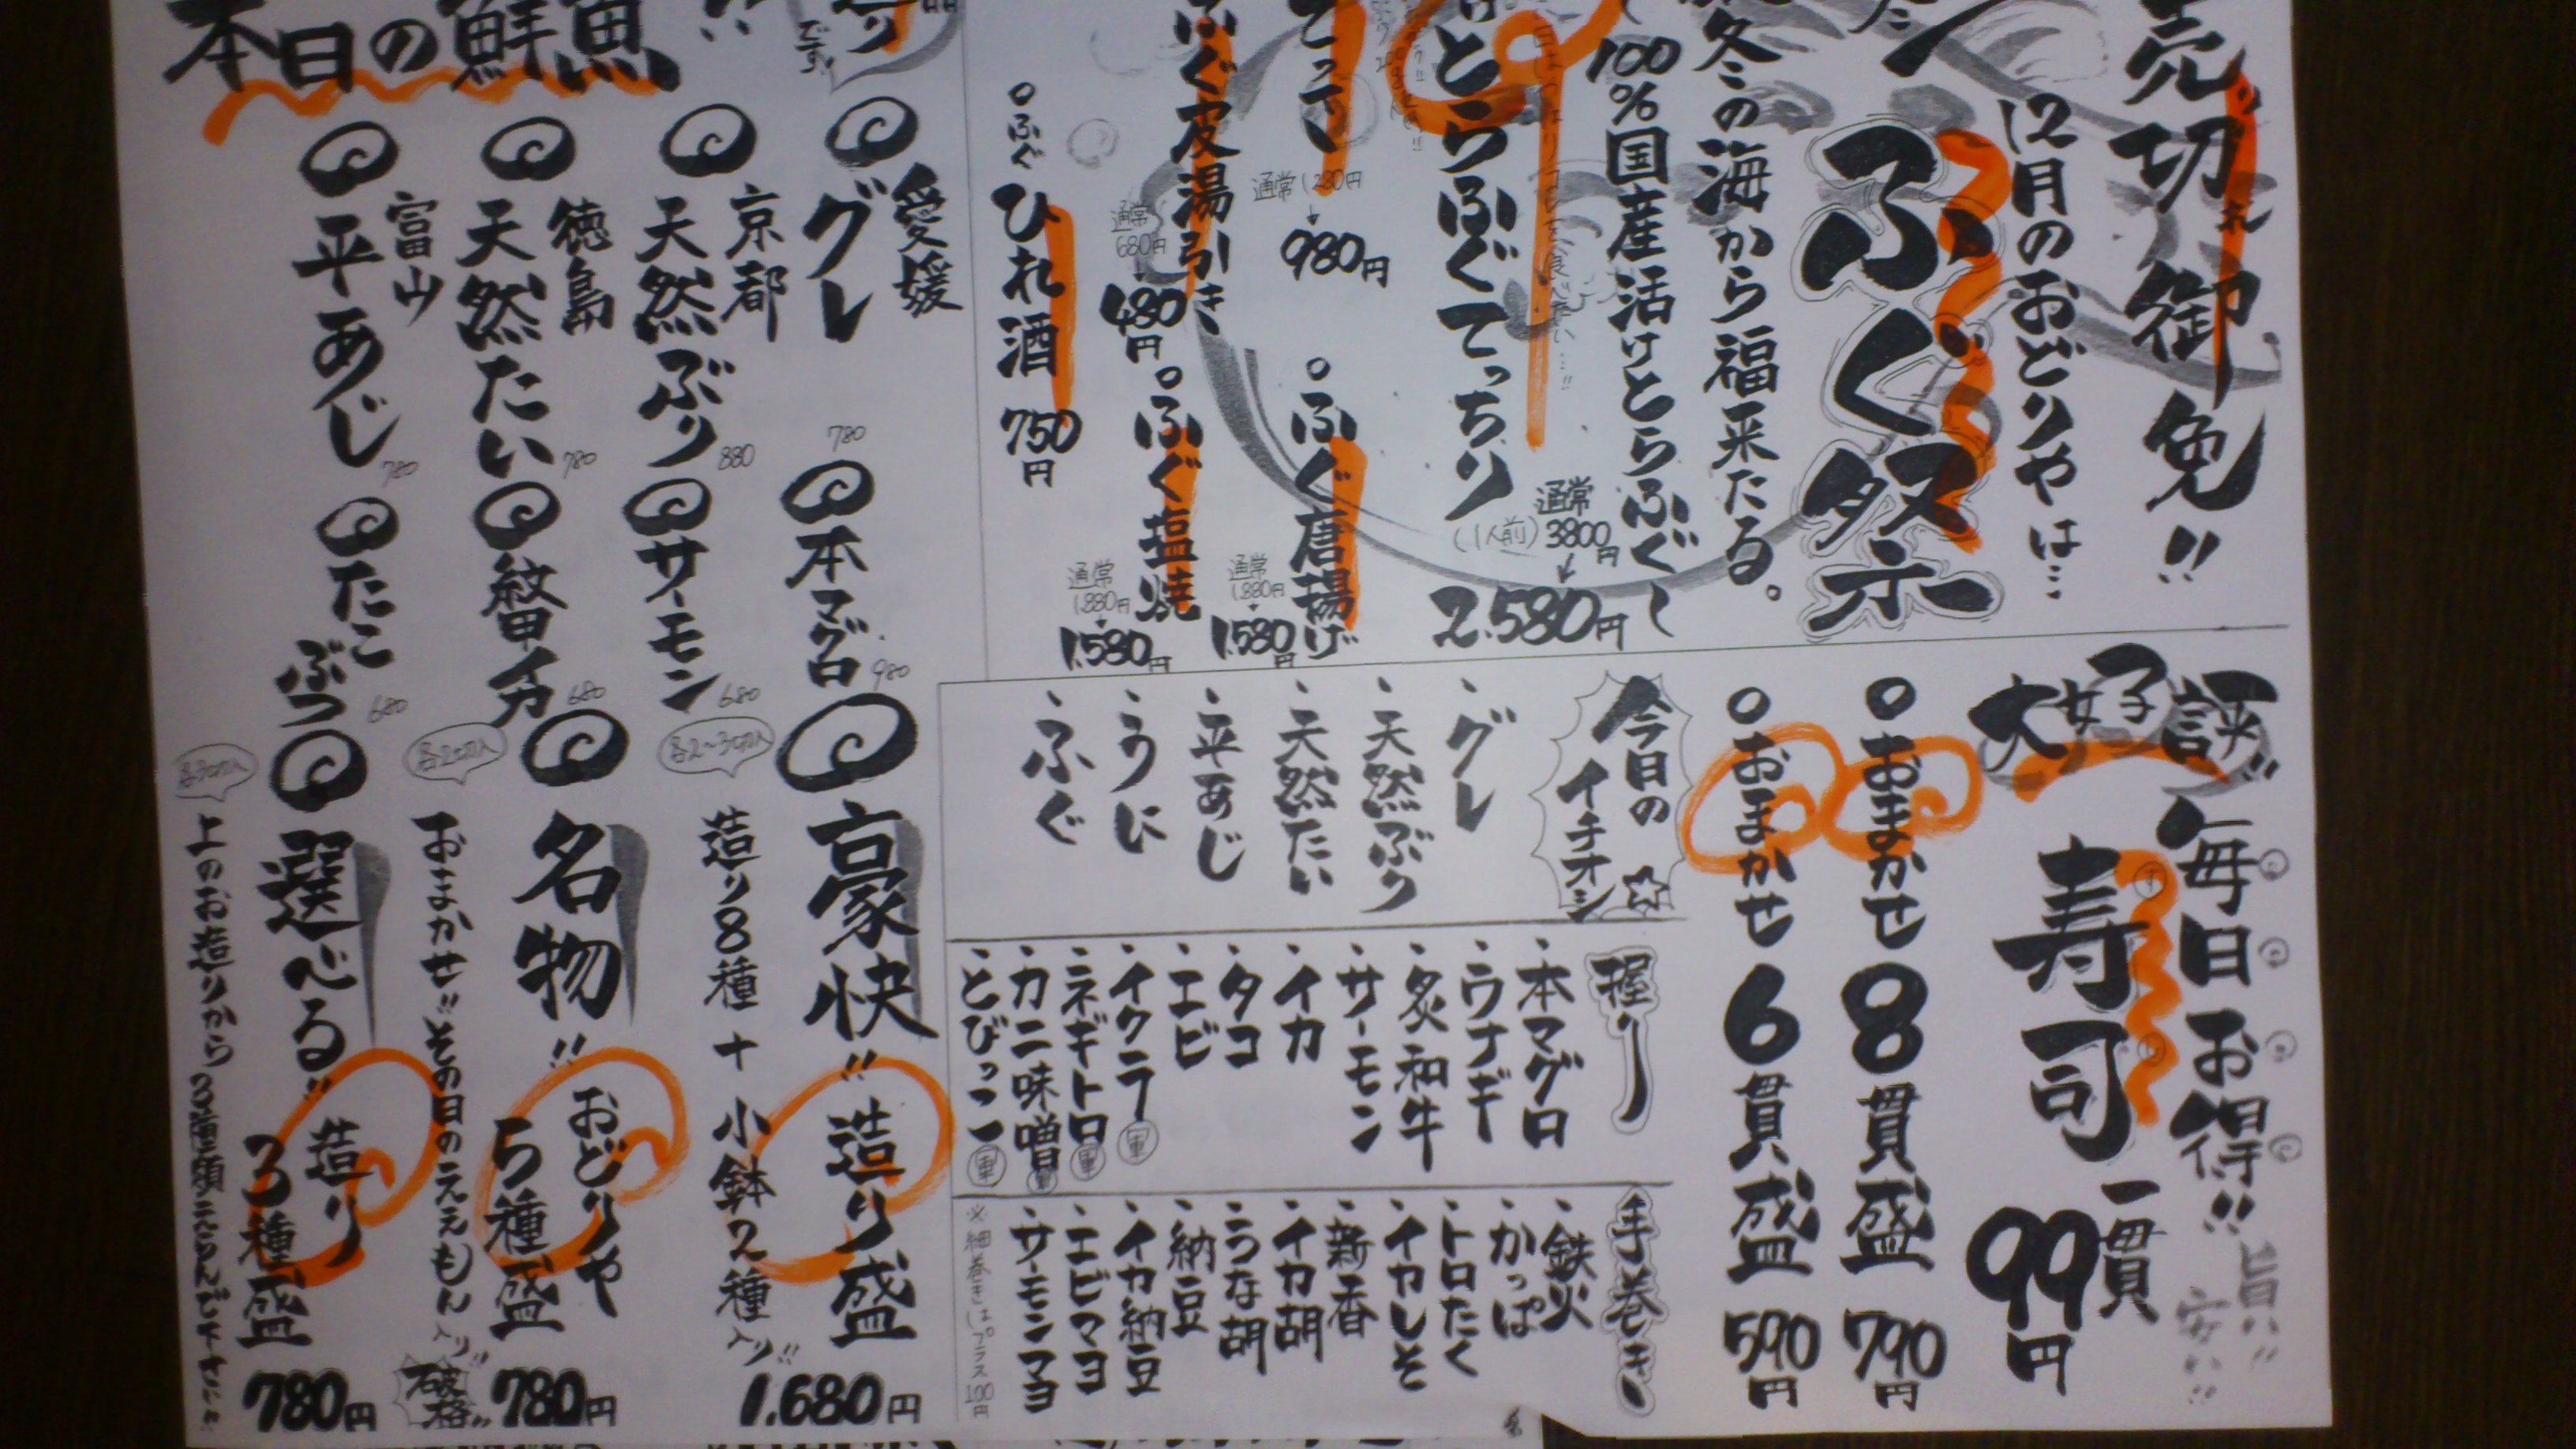 売切れ御免!!
12月のおどりやは…
ふぐ祭
冬の海から福来たる。
100%国産活けとらふぐ
とらふぐてっちり
(1人前)
通常3800円
↓
2.580円
通常1,280円
↓
980円
。ふぐ唐揚げ
通常1.880円
↓
1.580円
ふぐ皮湯引き
通常680円
↓
480円
。ふぐ塩焼
通常1.880円
↓
1.580円
。ふぐひれ酒 750円
大好評!!
毎日お得!!
旨い!!
安い!!
寿司
一貫
99円
。おまかせ8貫盛 790円
。おまかせ6貫盛 590円
今日のイチオシ☆
・グレ
・天然ぶり
・天然たい
・平あじ
・うに
・ふぐ
握り
・本マグロ
・ウナギ
・炙和牛
・サーモン
・イカ
・タコ
・エビ
・イクラ 軍
・ネギトロ 軍
・カニ味噌 軍
・とびっこ 軍
手巻き
・鉄火
・かっぱ
・トロたく
・イカしそ
・新香
・イカ胡
・うな胡
・納豆
・イカ納豆
・エビマヨ
・サーモンマヨ
※細巻きはプラス100円
本日の鮮魚
です!
愛媛
グレ 780
本マグロ 980
京都
天然ぶり 880
サーモン 680
徳島
天然たい 780
富山
平あじ 780
たこぶつ 680
豪快!! 造り盛 1.680円
造り8種+小鉢2種入り!!
各2〜3切入
名物!! おどりや5種盛 780円
おまかせ!!その日のええもん入り!!
破格!!
各2切入
選べる!! 造り3種盛 780円
上のお造りから3種類えらんで下さい